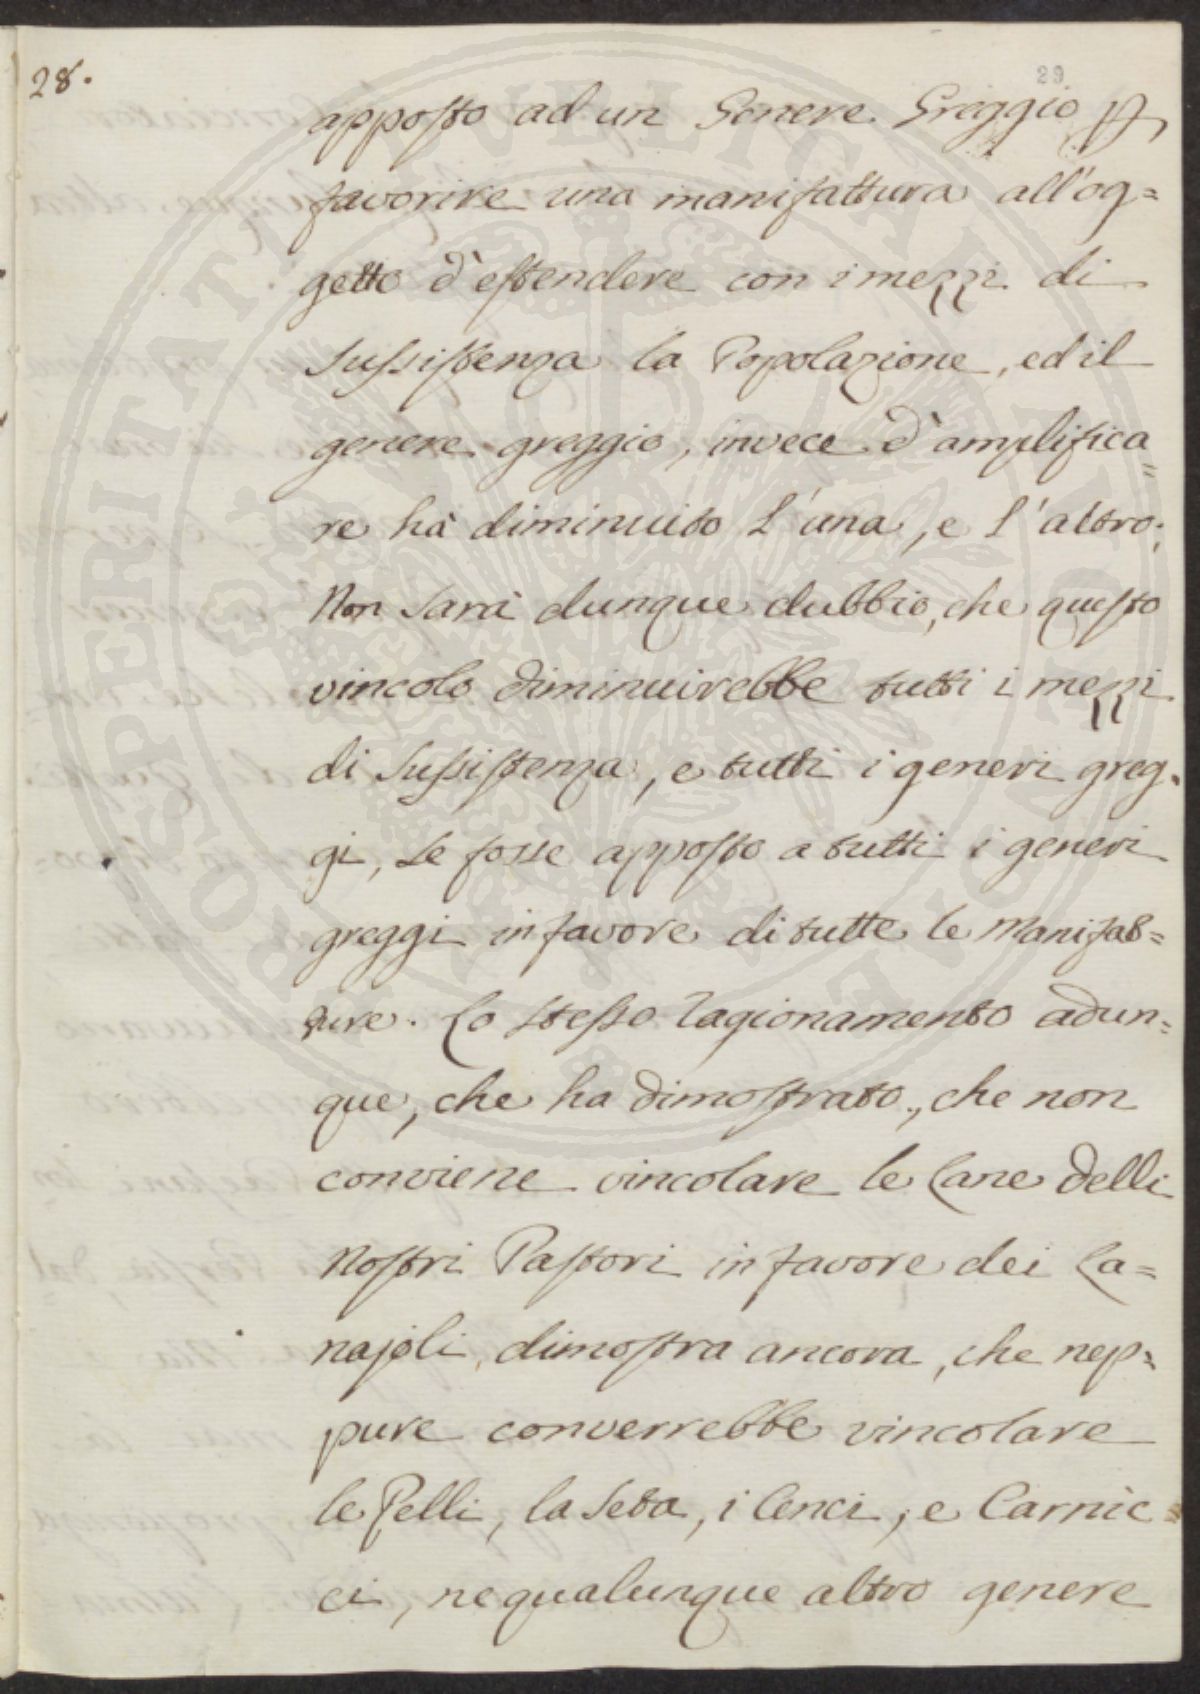 28.
29
apposto ad un Genere Greggio p
favorire una manifattura all'og=
getto d'estendere con i mezzi di
sussistenza la Popolazione, ed il
genere greggio, invece d'amplifica=
re hà diminuito l'una, e l'altro;
Non sarà dunque dubbio, che questo
vincolo diminuirebbe tutti i mezzi
di sussistenza, e tutti i generi greg=
gi, se fosse apposto a tutti i generi
greggi in favore di tutte le manifat=
ture. Lo stesso ragionamento adun=
que, che ha dimostrato, che non
conviene vincolare le Lane delli
nostri Pastori in favore dei La=
najoli, dimostra ancora, che nep=
pure converrebbe vincolare
le Pelli, la Seta, i Cenci, e Carnic=
ci, ne qualunque altro genere
PROSPERITATI PUBLICAE AUGENDAE